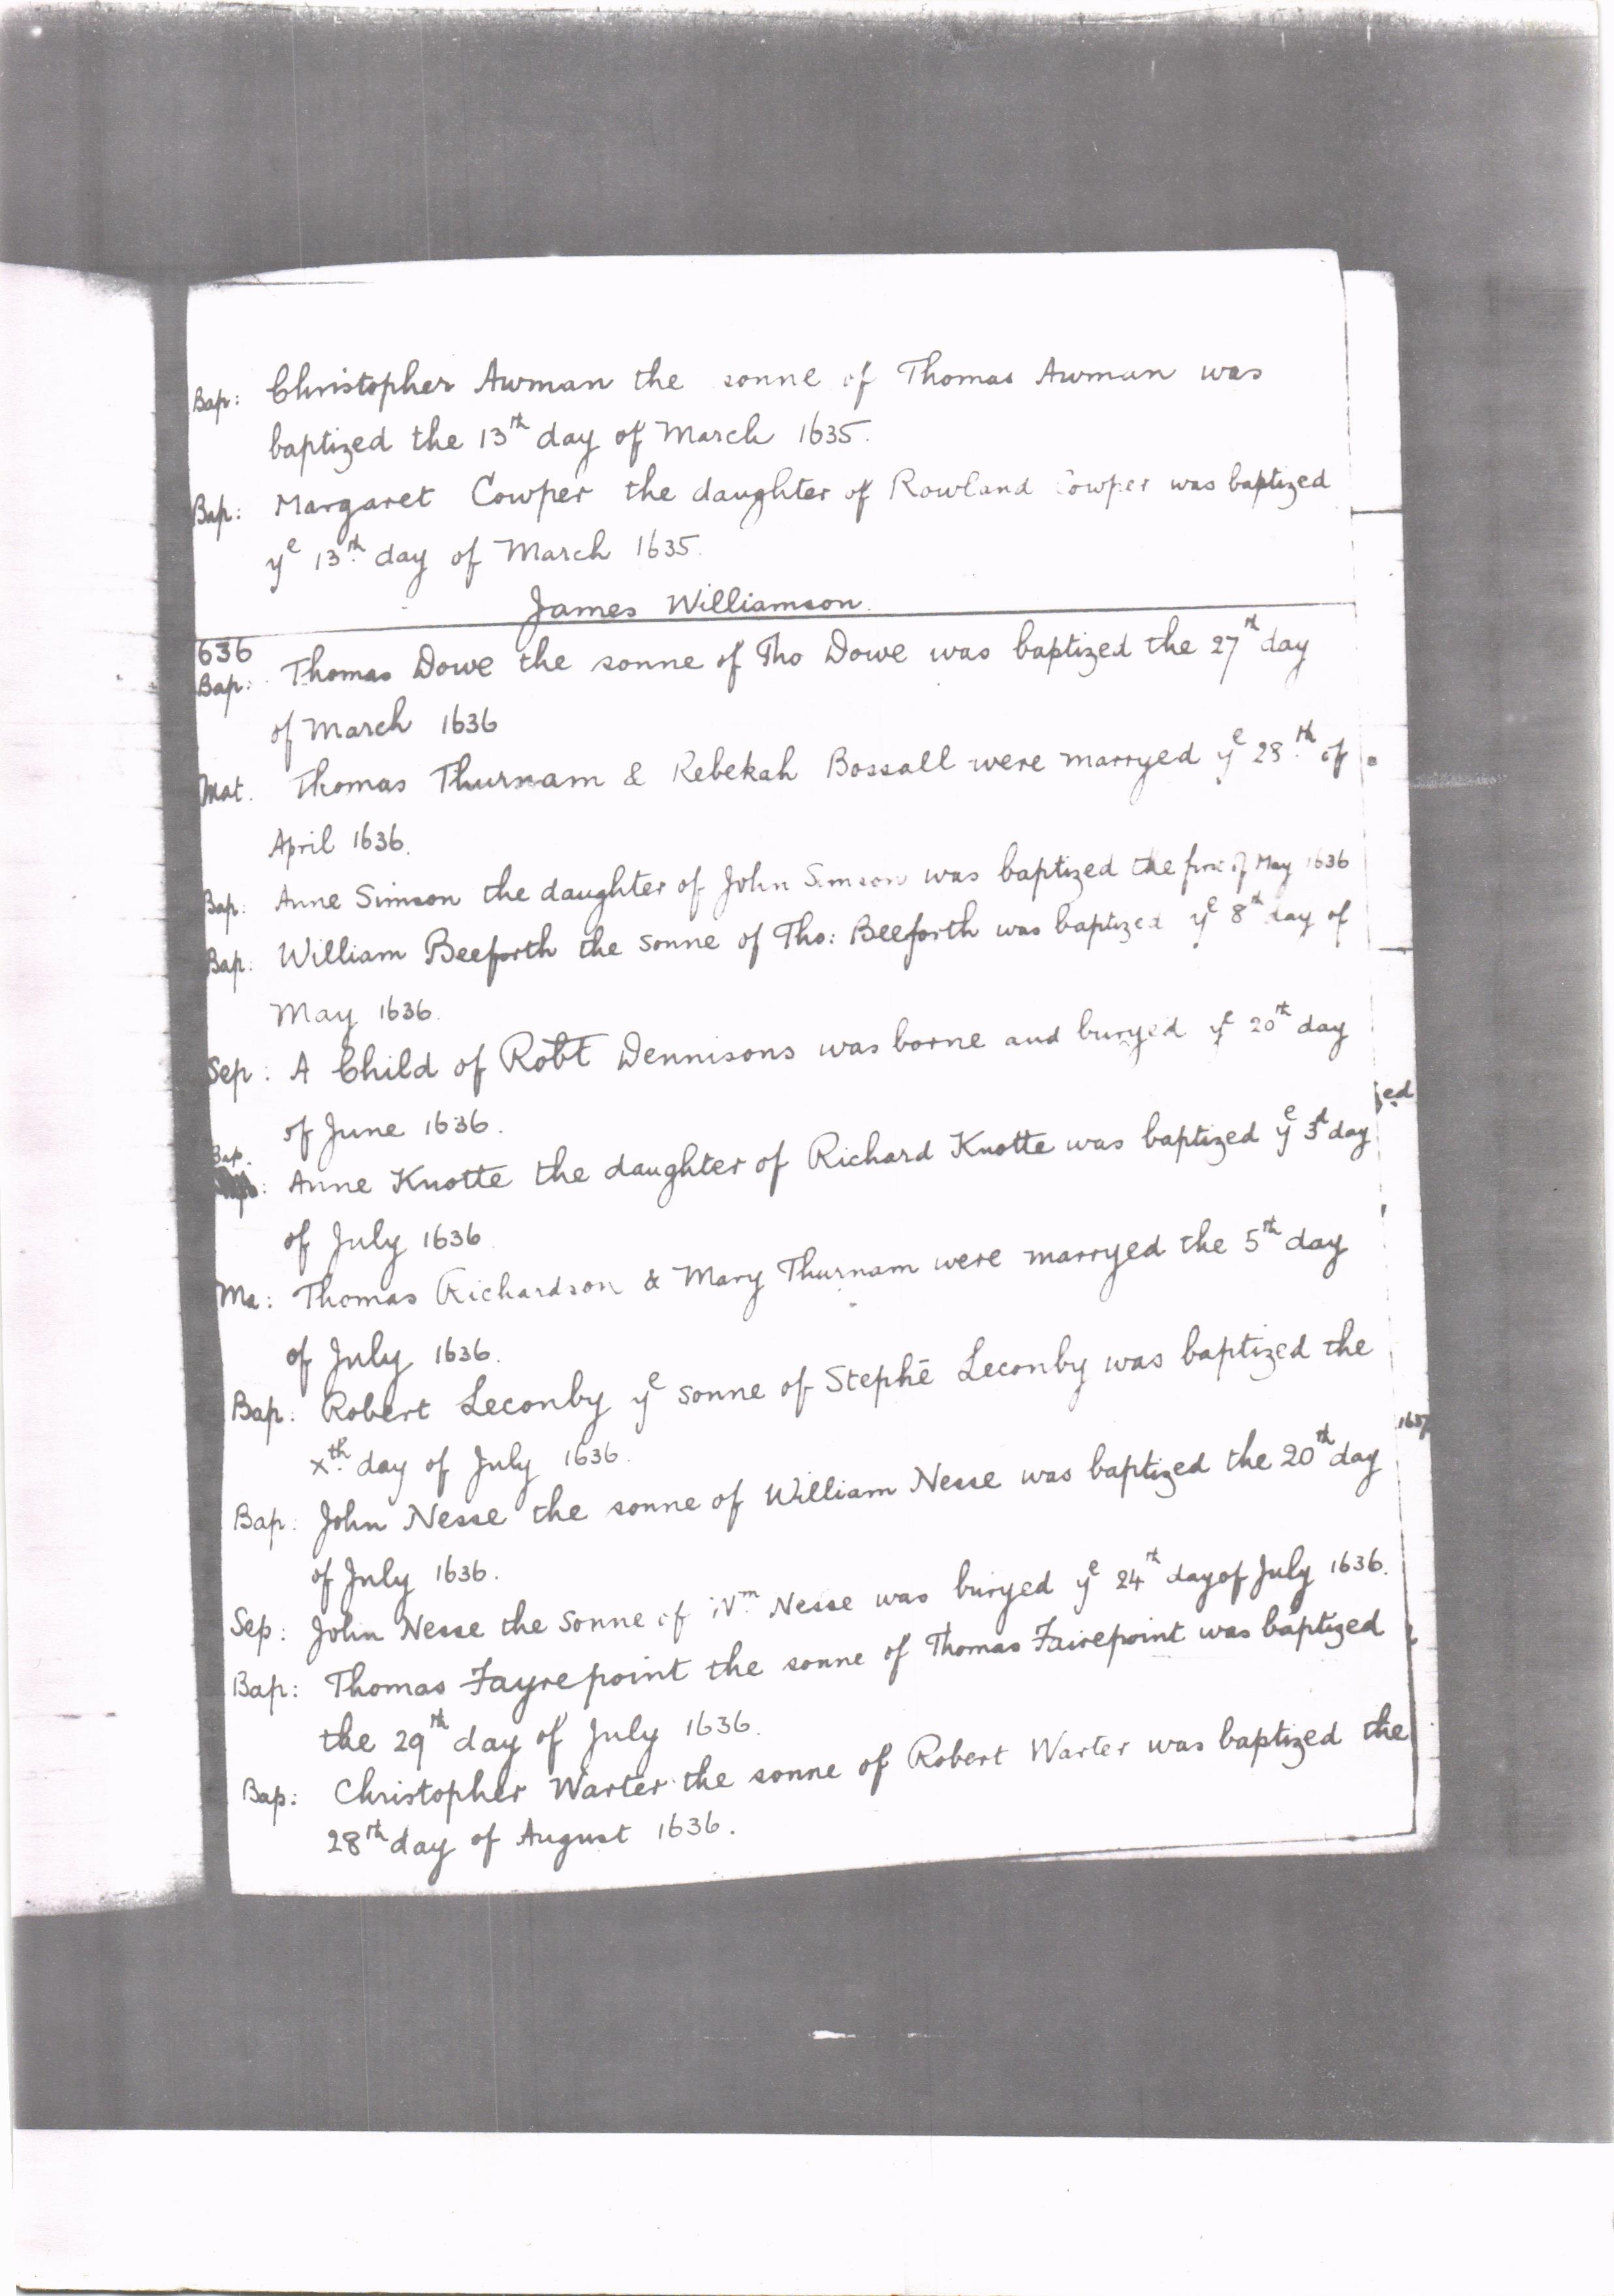 Bap: Christopher Awman the sonne of Thomas Awman was
baptized the 13th day of March 1635.
Bap: Margaret Cowper the daughter of Rowland Cowper was baptized
ye 13th day of March 1635.
James Williamson.
636
Bap: Thomas Dowe the sonne of Tho Dowe was baptized the 27th day
of March 1636
Mat. Thomas Thurnam & Rebekah Bossall were marryed ye 28th of
April 1636.
Bap: Anne Simson the daughter of John Simson was baptized the first of May 1636
Bap: William Beeforth the sonne of Tho: Beeforth was baptized ye 8th day of
May 1636.
Sep: A Child of Robt Dennisons was borne and buryed ye 20th day
of June 1636.
Bap. Anne Knotte the daughter of Richard Knotte was baptized ye 3d day
of July 1636
Ma: Thomas Richardson & Mary Thurnam were marryed the 5th day
of July 1636.
Bap: Robert Leconby ye sonne of Stephē Leconby was baptized the
xth day of July 1636.
Bap: John Nesse the sonne of William Nesse was baptized the 20th day
of July 1636.
Sep: John Nesse the sonne of Wm Nesse was buryed ye 24th day of July 1636.
Bap: Thomas Fayrepoint the sonne of Thomas Fairepoint was baptized
the 29th day of July 1636.
Bap: Christopher Warter the sonne of Robert Warter was baptized the
28th day of August 1636.
ed
1637